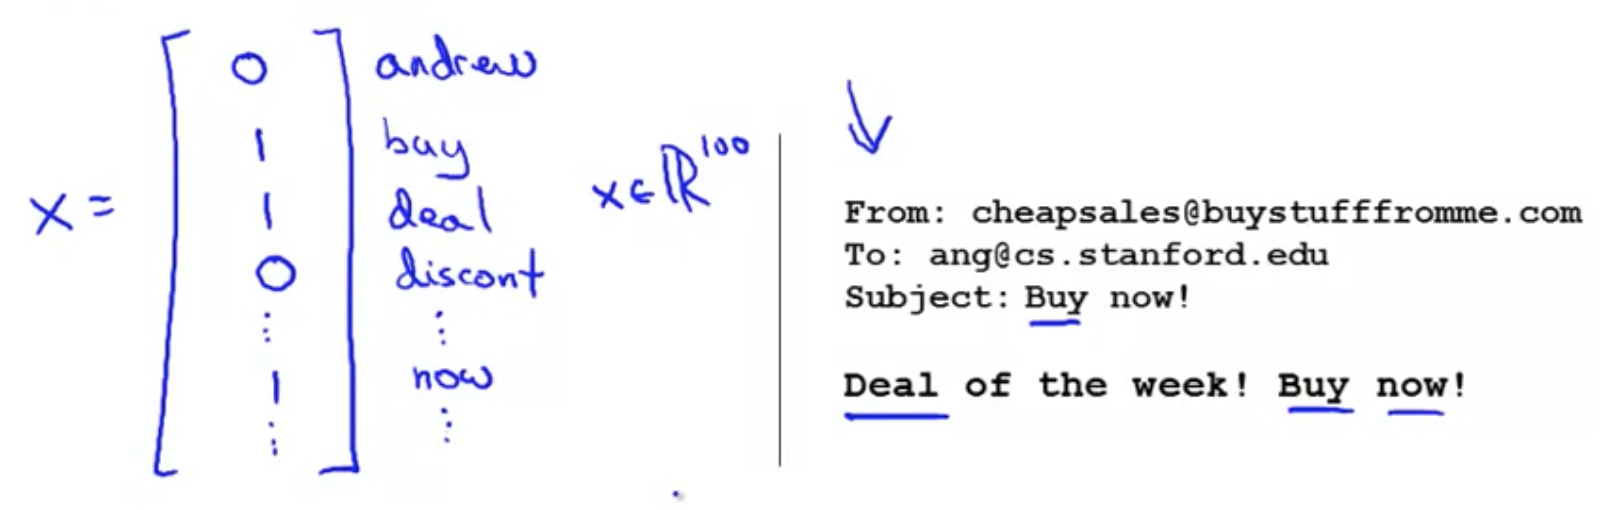 x = [
0 andrew
1 buy
1 deal
0 discont
⋮ ⋮
1 now
⋮ ⋮
]
x ∈ ℝ¹⁰⁰
From: cheapsales@buystufffromme.com
To: ang@cs.stanford.edu
Subject: Buy now!
Deal of the week! Buy now!